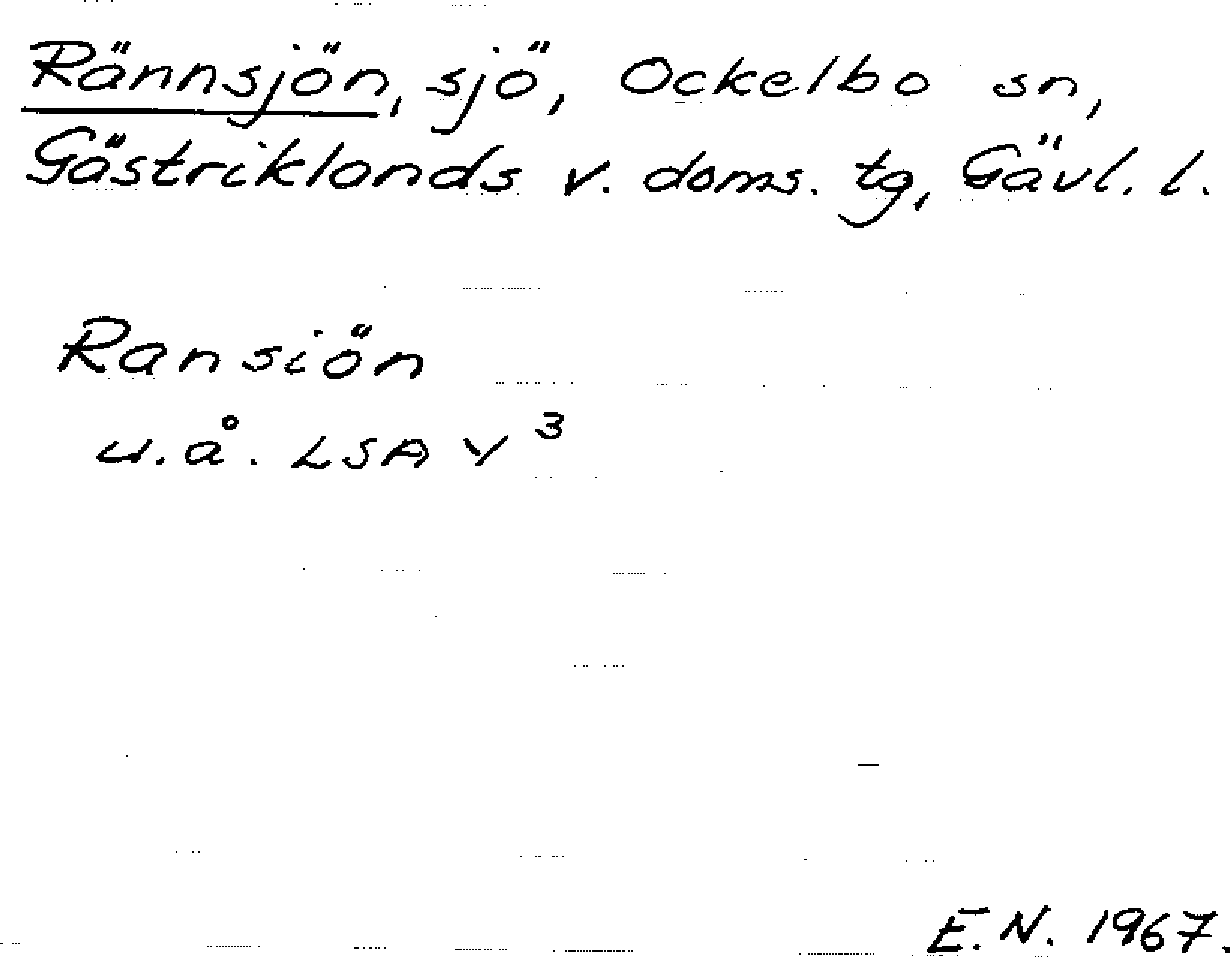 Rännsjön, sjö, Ockelbo sn,
Gästriklands v. doms. tg, Gävl. l.
Ransiön
u.å. LSA V 3
E.N. 1967.